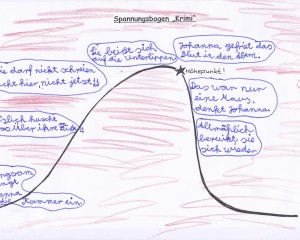 Spannungsbogen „Krimi"
Sie beißt sich
auf die Unterlippen
Johanna gefriert das
Blut in den Adern.
Höhepunkt!
ie darf nicht schreien
icht hier, nicht jetzt!!
Das war nur
eine Maus,
denkt Johanna.
tzlich huscht
as über ihre Füße
Allmählich
beruhigt sie
sich wieder.
ngsam
ngt
anna
die Kammer ein.